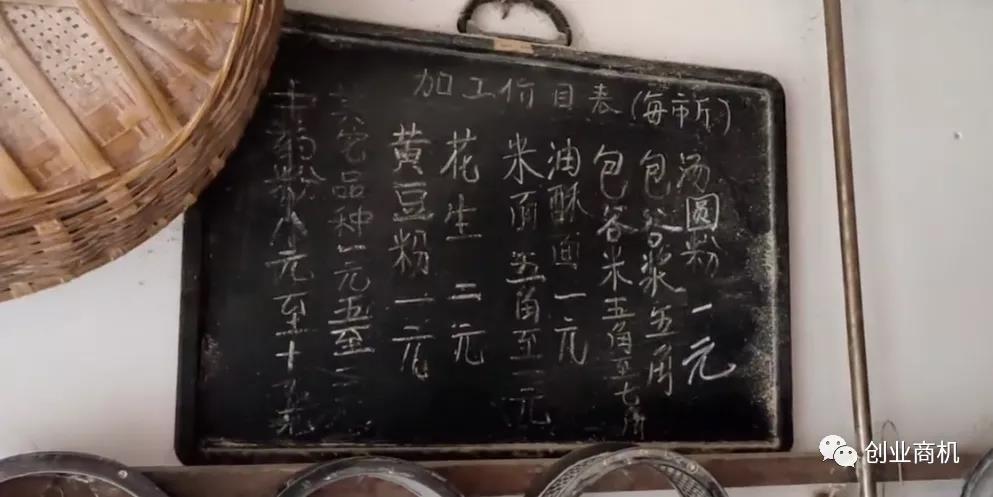 加工价目表(每市斤)
汤圆粉 一元
包谷浆 五角
包谷米五角至七角
油酥面 一元
米面 五角至一元
花生 二元
黄豆粉 一元
其它品种一元五至二元
中药粉八元至十
创业商机